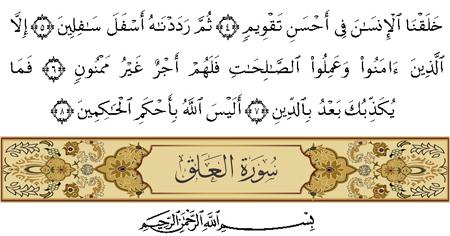 خَلَقْنَا ٱلْإِنسَـٰنَ فِىٓ أَحْسَنِ تَقْوِيمٍ ﴿٤﴾ ثُمَّ رَدَدْنَـٰهُ أَسْفَلَ سَـٰفِلِينَ ﴿٥﴾ إِلَّا
ٱلَّذِينَ ءَامَنُوا۟ وَعَمِلُوا۟ ٱلصَّـٰلِحَـٰتِ فَلَهُمْ أَجْرٌ غَيْرُ مَمْنُونٍ ﴿٦﴾ فَمَا
يُكَذِّبُكَ بَعْدُ بِٱلدِّينِ ﴿٧﴾ أَلَيْسَ ٱللَّهُ بِأَحْكَمِ ٱلْحَـٰكِمِينَ ﴿٨﴾
سُورَةُ الْعَلَقِ
بِسْمِ اللَّهِ الرَّحْمَٰنِ الرَّحِيمِ